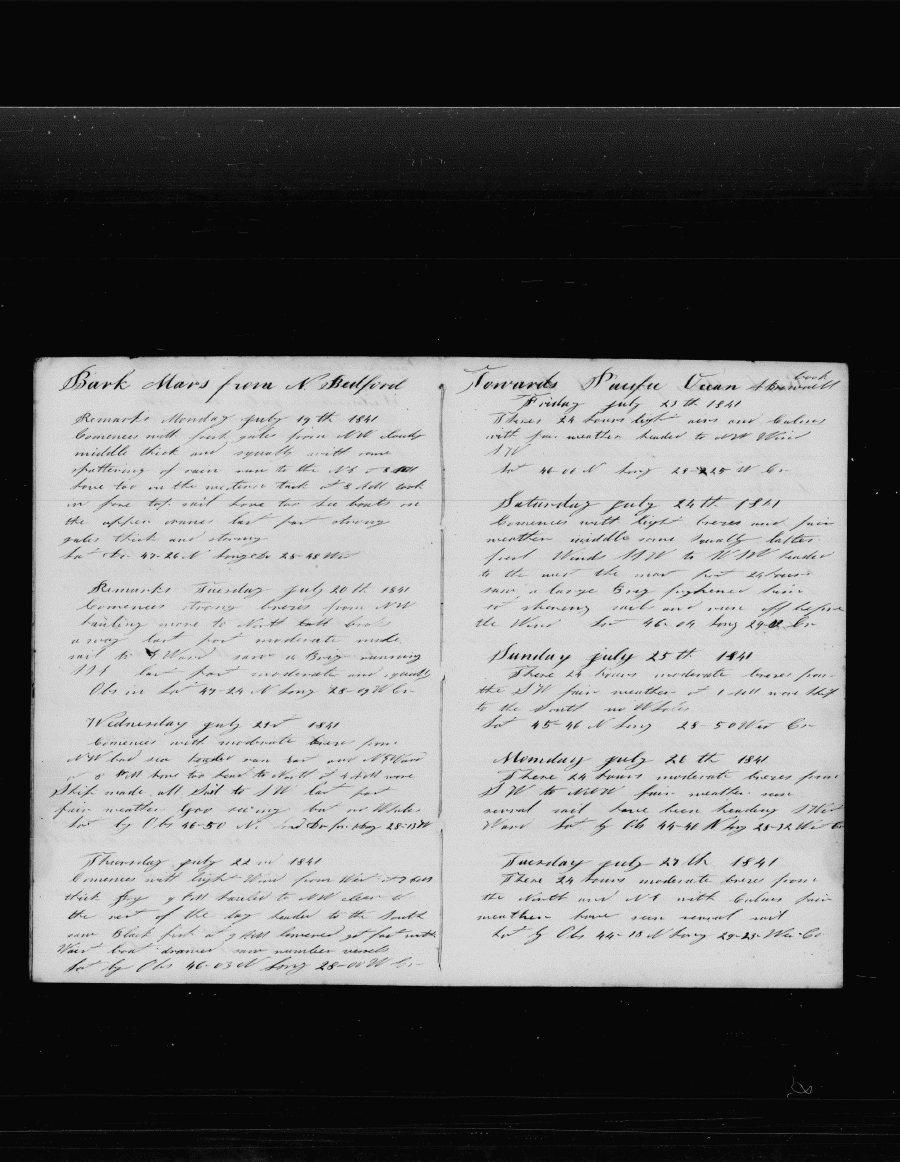 Bark Mars from N Bedford
Remarks Monday july 19th 1841
Comences with fresh gales from NW cloudy
middle thick and squally with some
spattering of rain run to the NE at 8 AM
hove too on the western tack at 8 AM took
in fore top sail hove too see boats on
the upper cranes last part strong
gales thick and stormy
Lat 47-26 N Long 28-48 West
Remarks Tuesday july 20th 1841
Comences strong brezes from NW
hauling more to North
away last part moderate made
sail to Ward saw a Brig running
last part moderate and squaly
Obs in Lat 47-24 N Long 28-09 W Cr
Wednesday july 21st 1841
Comences with moderate breze from
NW bad sea header run Est and NEWard
at 8 PM hove too head to North at 4 AM wore
Ship made all Sail to SW last part
fair weather Good seeing but no Whales
Lat by Obs 46-50 N Long 28-13 W
Thursday july 22nd 1841
Comences with light Wind from West at 7 AM
thick fog 9 PM hauled to NW clear
the rest of the day header to the South
saw Black fish at 9 AM lowered got fast with
Wast boat drawed saw number vessels
Lat by Obs 46-03 N Long 28-00 W Cr
Towards Pacific Ocean book
Friday july 23th 1841
These 24 hours light airs and Calmes
with fair weather header to NW Wind
SW
Lat 46-00 N Long 28-25 W Cr
Saturday july 24th 1841
Comences with light brezes and fair
weather middle some squally latter
fresh Winds SSW to WSW header
to the west the most part 24 hours
saw a large Brig frightened
shortning sail and wore off before
the Wind Lat 46-04 Long 29-12 Cr
Sunday july 25th 1841
These 24 hours moderate brezes from
the SW fair weather at 1 AM wore Ship
to the South no Whales
Lat 45-46 N Long 28-50 West Cr
Momday july 26th 1841
These 24 hours moderate brezes from
SW to NNW fair weather seen
several sail have been heading SWest
Ward Lat by Obs 44-41 N Long 28-32 West Cr
Tuesday july 27th 1841
These 24 hours moderate brezes from
the North and NE with Calms fair
weather have seen several sail
Lat by Obs 44-18 N Long 29-28 West Cr